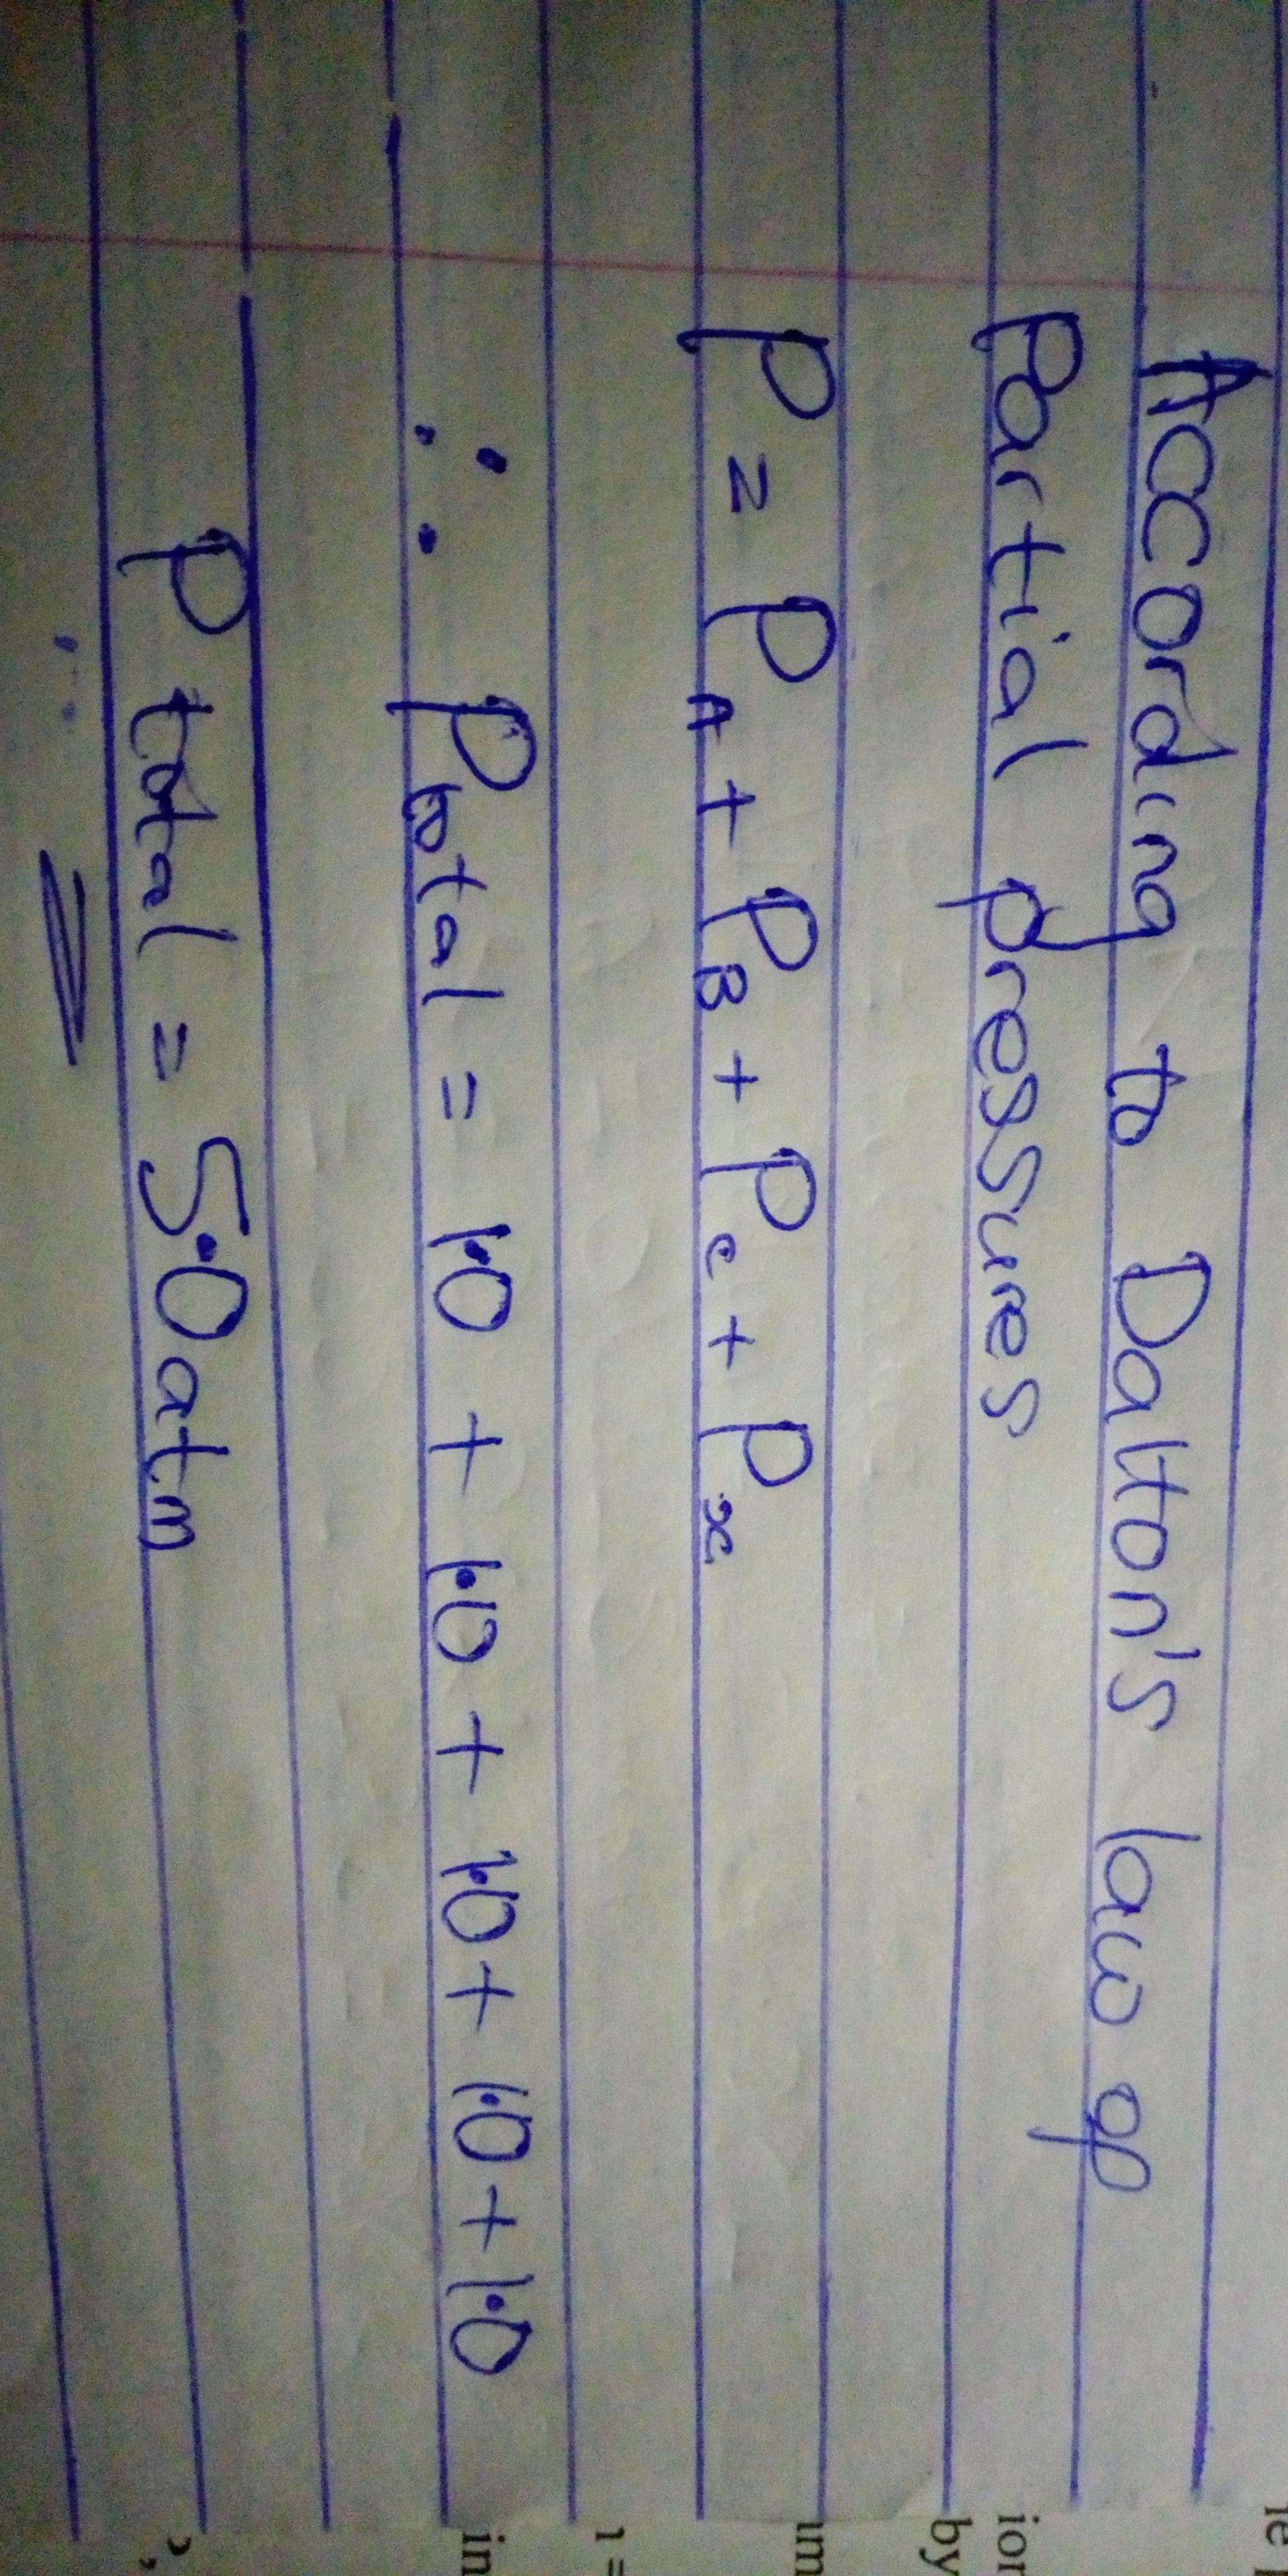 According to Dalton's law of
Partial pressures
P = P_A + P_B + P_c + P_x
∴ Ptotal = 1.0 + 1.0 + 1.0 + 1.0 + 1.0
P total = 5.0 atm
ior
by
um
1 =
in